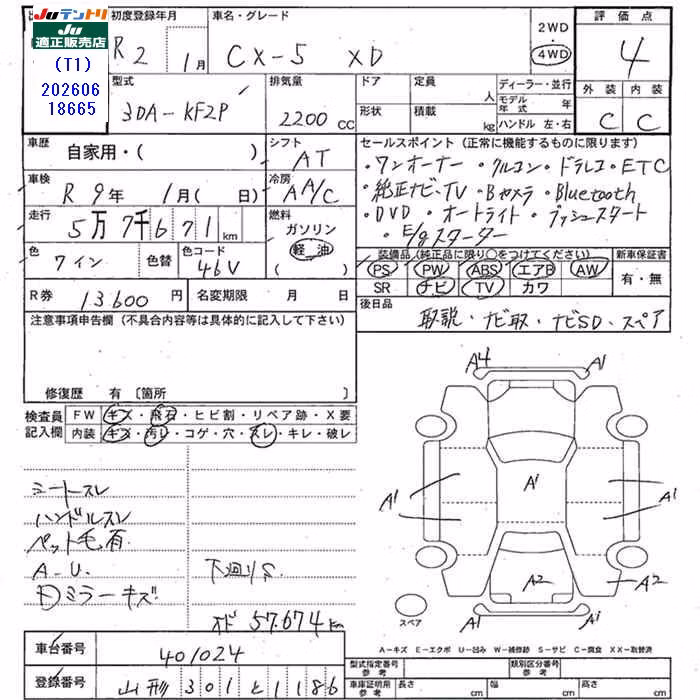 Juテントリ
Ju
適正販売店
(T1)
202606
18665
初度登録年月
R2 1月
車名・グレード
CX-5 XD
2WD
4WD
評価点
4
外装 内装
C C
型式
3DA-KF2P
排気量
2200 CC
ドア
定員
人
形状
積載
kg
ディーラー・並行
モデル年式 年
ハンドル 左・右
車歴
自家用・( )
シフト
AT
車検
R 9年 1月( 日)
冷房
AA/C
走行
5万7千671 km
燃料
ガソリン
軽油
色
ワイン
色替
色コード
46V
R券
13600円
名変期限 月 日
セールスポイント(正常に機能するものに限ります)
・ワンオーナー ・クルコン・ドラレコ・ETC
・純正ナビ・TV・Bカメラ・Bluetooth
・DVD・オートライト・プッシュスタート
・E/gスターター
装備品(純正品に限り○をつけてください)
PS PW ABS エアB AW
SR ナビ TV カワ
新車保証書
有・無
後日品
取説・ナビ取・ナビSD・スペア
注意事項申告欄(不具合内容等は具体的に記入して下さい)
修復歴 有〔箇所 〕
検査員記入欄
FW キズ・飛石・ヒビ割・リペア跡・X要
内装 キズ・汚レ・コゲ・穴・スレ・キレ・破レ
シートスレ
ハンドルスレ
ペット毛有
A-U.
ミラーキズ
下廻りS
オド 57.674km
A4 A1
A1 A1 A1
A1 A1
A2 A2
A1 A1
スペア
A-キズ E-エクボ U-凹み W-補修跡 S-サビ C-腐食 XX-取替済
車台番号
401024
登録番号
山形301と1186
型式指定番号 参考
類別区分番号 参考
車庫証明用 参考
長さ cm
幅 cm
高さ cm